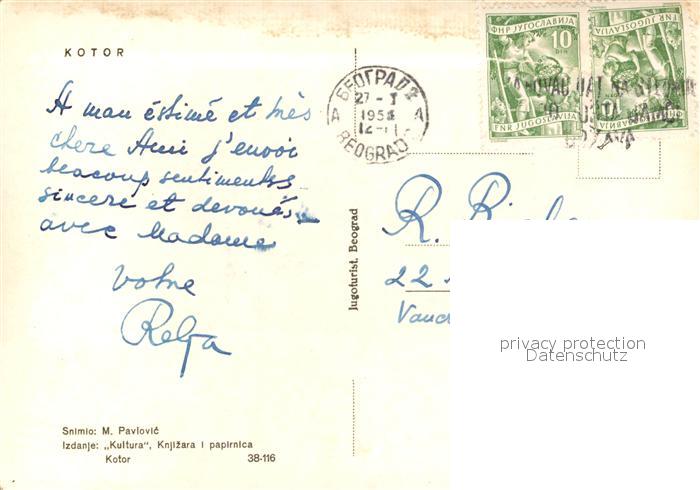 KOTOR
A mon éstimé et trés
chere Ami j'envoi
beacoup sentimentss
sincere et devoués
avec Madame
Votre
Relja
Snimio: M. Pavlović
Izdanje: „Kultura", Knjižara i papirnica
Kotor
38-116
Jugoturist, Beograd
БЕОГРАД 2
27-1
195
12-11
BEOGRAD
A A
ФНР ЈУГОСЛАВИЈА
10
DIN
FNR JUGOSLAVIJA
FNR JUGOSLAVIJA
R.
22
privacy protection
Datenschutz